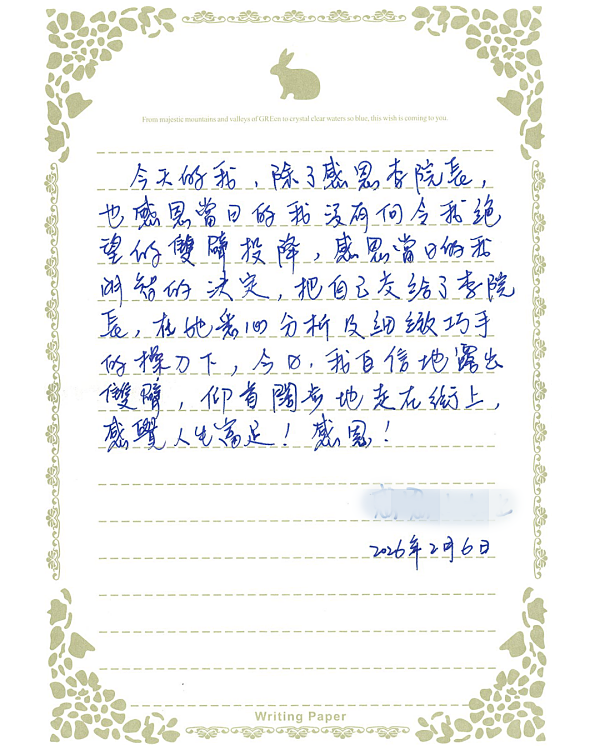 From majestic mountains and valleys of GREen to crystal clear waters so blue, this wish is coming to you.
今天的我，除了感恩李院長，
也感恩當日的我没有向令我絕
望的雙臂投降，感恩當日的我
明智的決定，把自己交給了李院
長，在他悉心分析及細緻巧手
的操刀下，今日，我自信地露出
雙臂，仰首闊步地走在街上，
感覺人生滿足！感恩！
2026年2月6日
Writing Paper